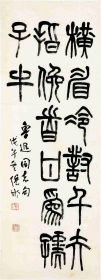 橫眉冷對千夫
指俯首甘為孺
子牛
魯迅同志句
戊午